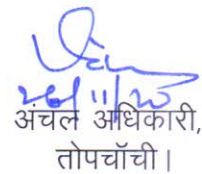 26/11/20
अंचल अधिकारी,
तोपचॉची।